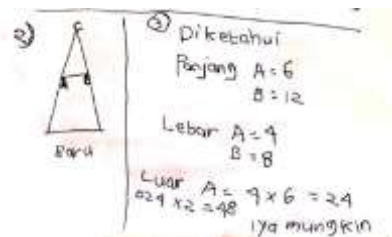 2)
C
A B
Baru
③ Diketahui
Panjang A = 6
B = 12
Lebar A = 4
B = 8
Luar A = 4 x 6 = 24
24 x 2 = 48
iya mungkin